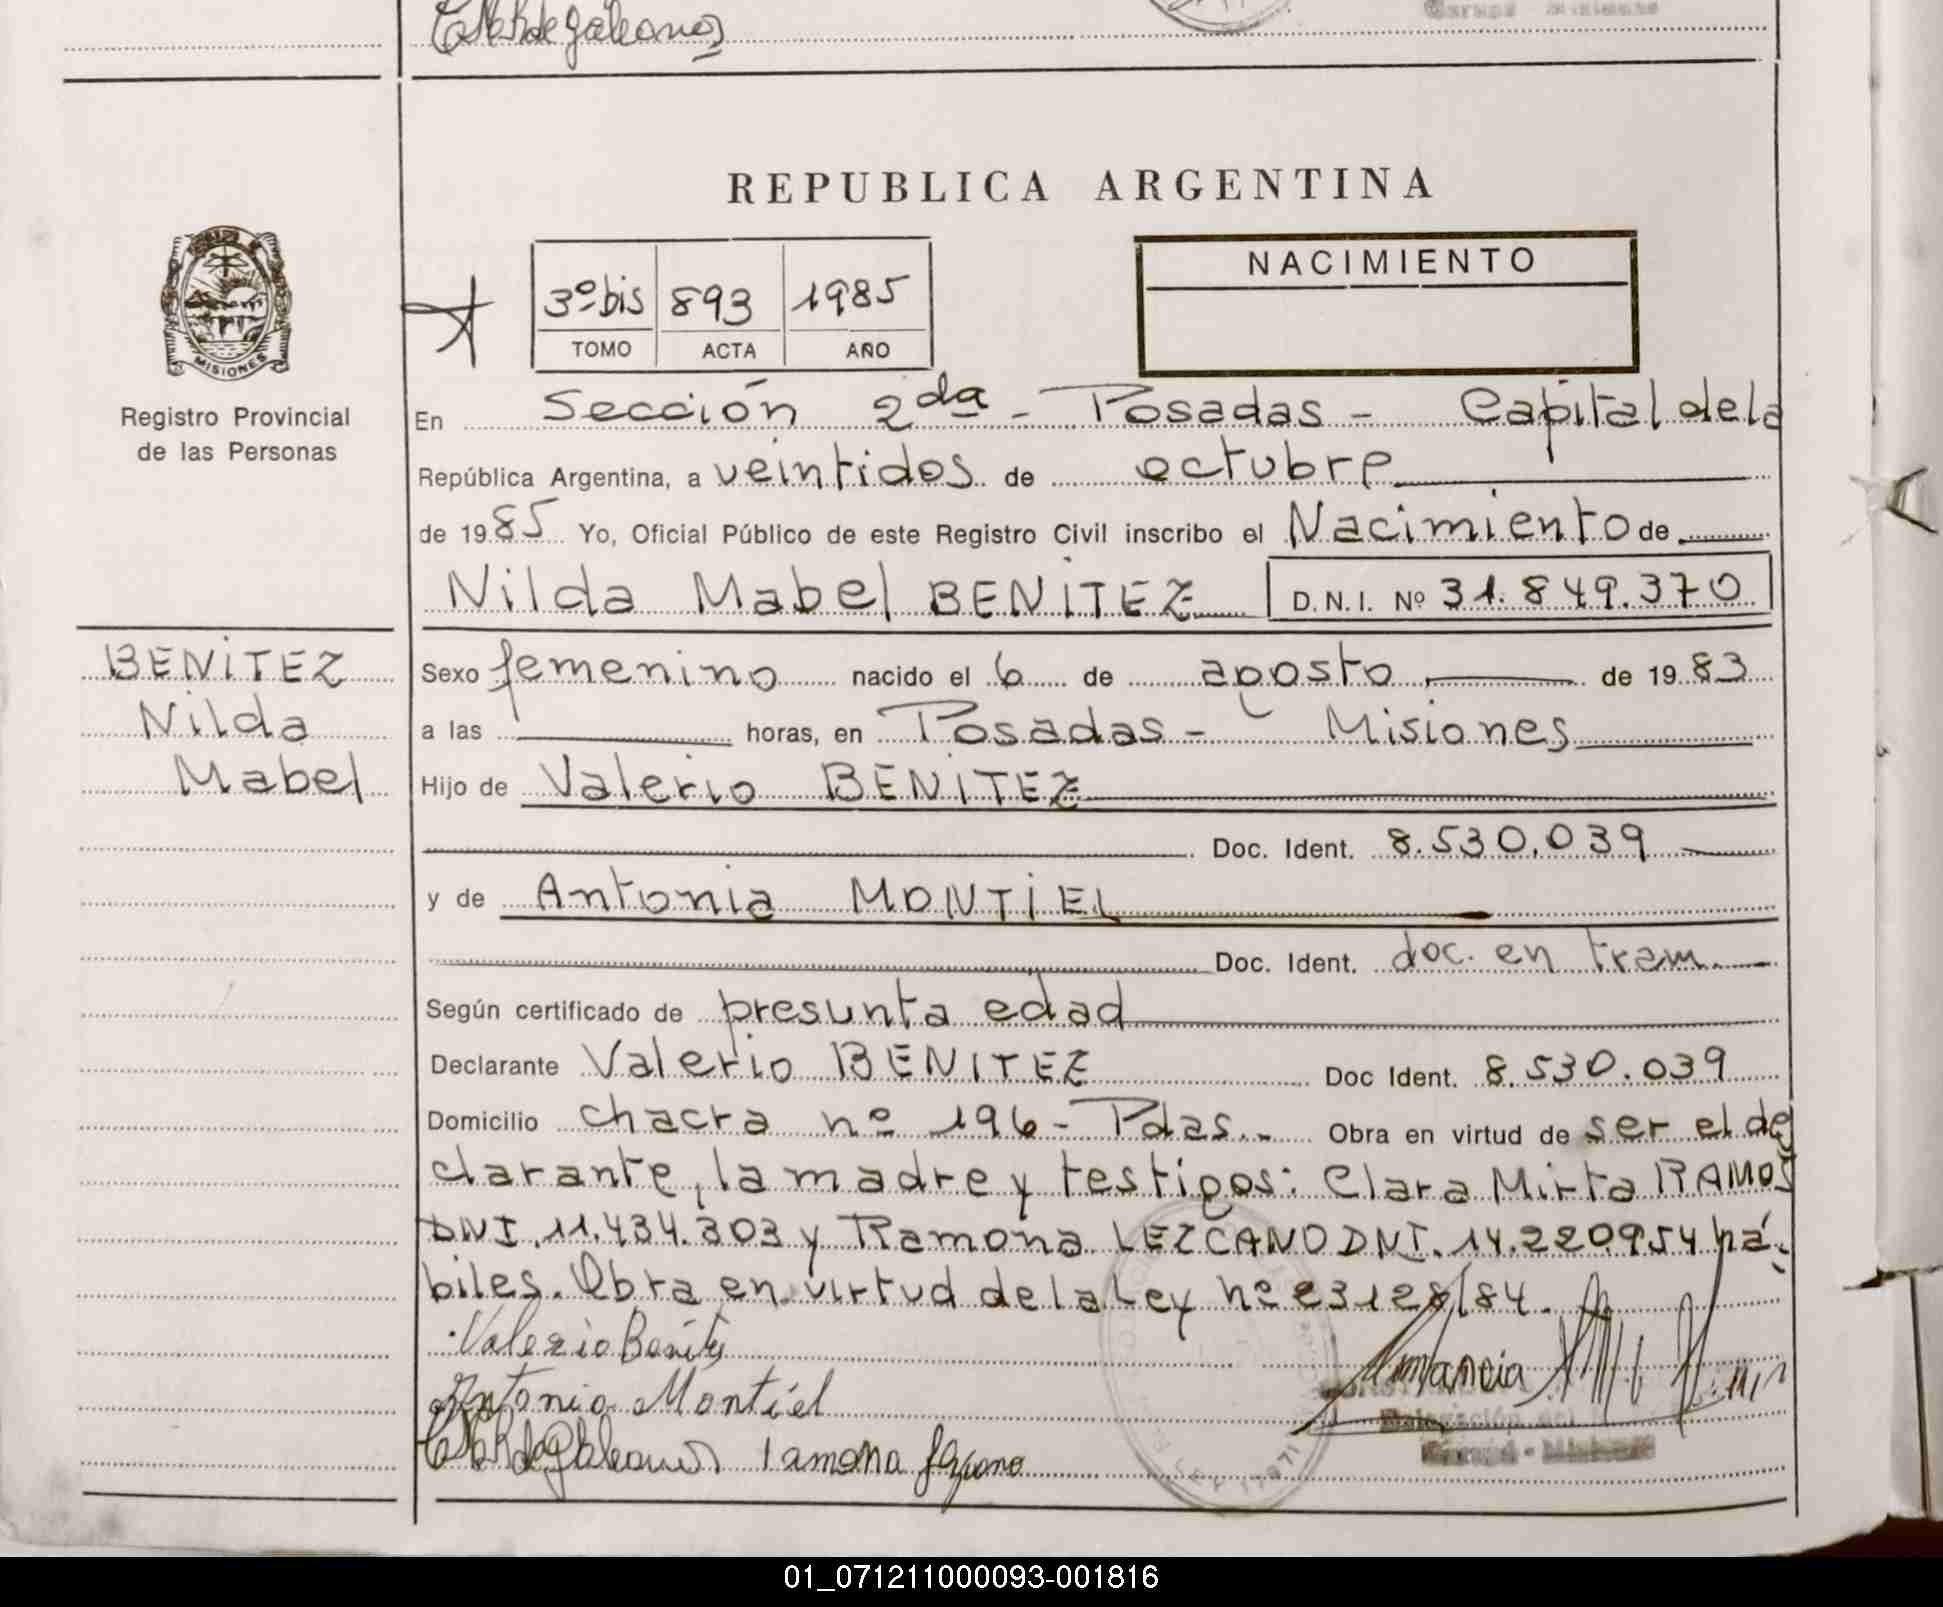 REPUBLICA ARGENTINA
NACIMIENTO
3º bis 893 1985
TOMO ACTA AÑO
MISIONES
Registro Provincial
de las Personas
En Sección 2da - Posadas - Capital de la
República Argentina, a veintidos de octubre
de 1985 Yo, Oficial Público de este Registro Civil inscribo el Nacimiento de
Nilda Mabel BENITEZ D.N.I. Nº 31.849.370
BENITEZ
Nilda
Mabel
Sexo femenino nacido el 6 de agosto de 1983
a las horas, en Posadas - Misiones
Hijo de Valerio BENITEZ
Doc. Ident. 8.530.039
y de Antonia MONTIEL
Doc. Ident. doc. en tram.
Según certificado de presunta edad
Declarante Valerio BENITEZ Doc Ident. 8.530.039
Domicilio chacra nº 196 - Pdas. Obra en virtud de ser el de
clarante, la madre y testigos: Clara Mirta RAMOS
DNI. 11.434.303 y Ramona LEZCANO DNI. 14.220.954 há-
biles. Obra en virtud de la Ley nº 23128/84.
Valerio Benítez
Antonia Montiel
Ramona
01_071211000093-001816